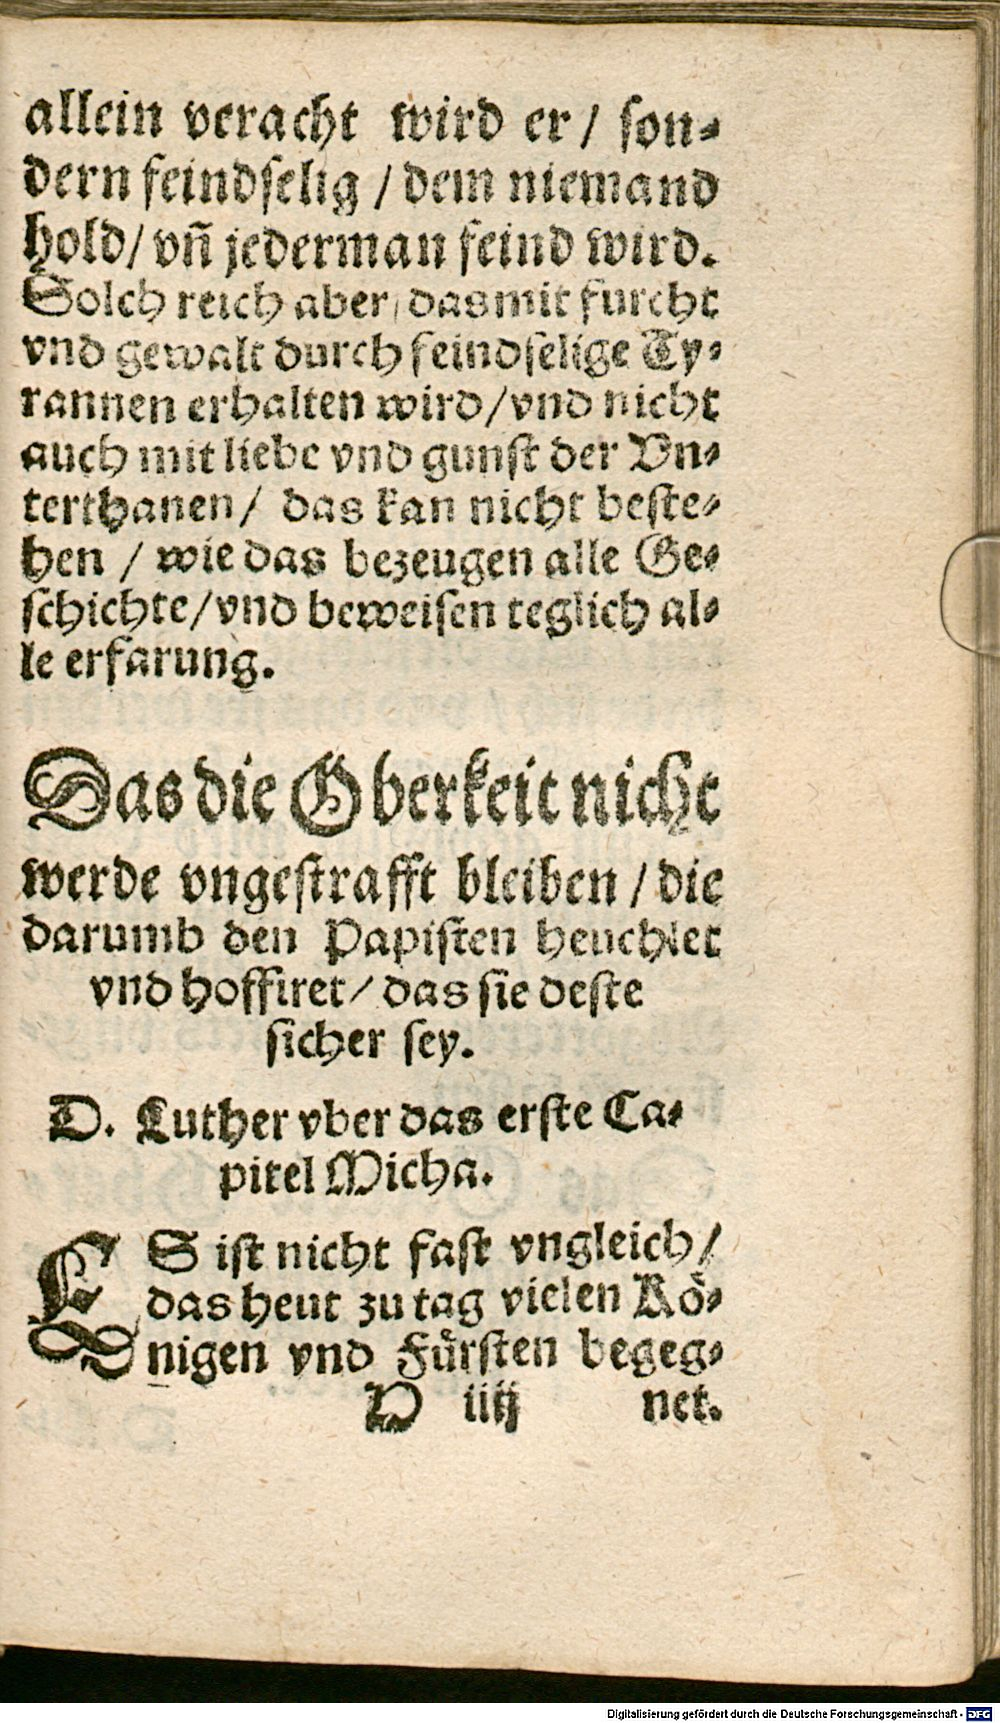 allein veracht wird er / son⸗
dern feindselig / dem niemand
hold / vñ jederman feind wird.
Solch reich aber / das mit furcht
vnd gewalt durch feindselige Ty⸗
rannen erhalten wird / vnd nicht
auch mit liebe vnd gunst der Vn⸗
terthanen / das kan nicht beste⸗
hen / wie das bezeugen alle Ge⸗
schichte / vnd beweisen teglich al⸗
le erfarung.
Das die Oberkeit nicht
werde vngestrafft bleiben / die
darumb den Papisten heuchlet
vnd hoffiret / das sie deste
sicher sey.
D. Luther vber das erste Ca⸗
pitel Micha.
ES ist nicht fast vngleich /
das heut zu tag vielen Kö⸗
nigen vnd Fürsten begeg⸗
D iiij net.
Digitalisierung gefördert durch die Deutsche Forschungsgemeinschaft - DFG